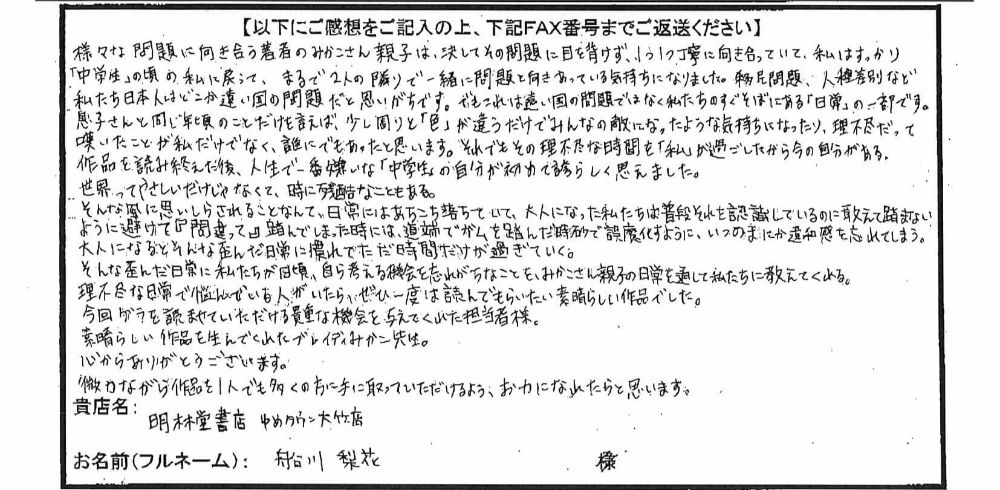 【以下にご感想をご記入の上、下記FAX番号までご返送ください】
様々な問題に向き合う著者のみかこさん親子は、決してその問題に目を背けず、1つ1つ丁寧に向き合っていて、私はすっかり
「中学生」の頃の私に戻って、まるで2人の隣りで一緒に問題と向きあっている気持ちになりました。移民問題、人種差別など
私たち日本人はどこか遠い国の問題だと思いがちです。でもこれは遠い国の問題ではなく私たちのすぐそばにある「日常」の一部です。
息子さんと同じ年頃のことだけを言えば、少し周りと「色」が違うだけでみんなの敵になったような気持ちになったり、理不尽だって
嘆いたことが私だけでなく、誰にでもあったと思います。それでもその理不尽な時間を「私」が過ごしたから今の自分がある。
作品を読み終えた後、人生で一番嫌いな「中学生」の自分が初めて誇らしく思えました。
世界ってやさしいだけじゃなくて、時に残酷なこともある。
そんな風に思いしらされることなんて、日常にはあちこち落ちていて、大人になった私たちは普段それを認識しているのに敢えて踏まない
ように避けて『間違って』踏んでしまった時には、道端でガムを踏んだ時みたいで誤魔化すように、いつのまにか違和感を忘れてしまう。
大人になるとそんな歪んだ日常に慣れてただ時間だけが過ぎていく。
そんな歪んだ日常に私たちが日頃、自ら考える機会を忘れがちなことを、みかこさん親子の日常を通して私たちに教えてくれる。
理不尽な日常で悩んでいる人がいたら、ぜひ一度は読んでもらいたい素晴らしい作品でした。
今回ゲラを読ませていただける貴重な機会を与えてくれた担当者様。
素晴らしい作品を生んでくれたブレイディみかこ先生。
心からありがとうございます。
微力ながら作品を1人でも多くの方に手に取っていただけるよう、お力になれたらと思います。
貴店名： 明林堂書店 ゆめタウン大竹店
お名前(フルネーム)： 舟谷川 梨花 様